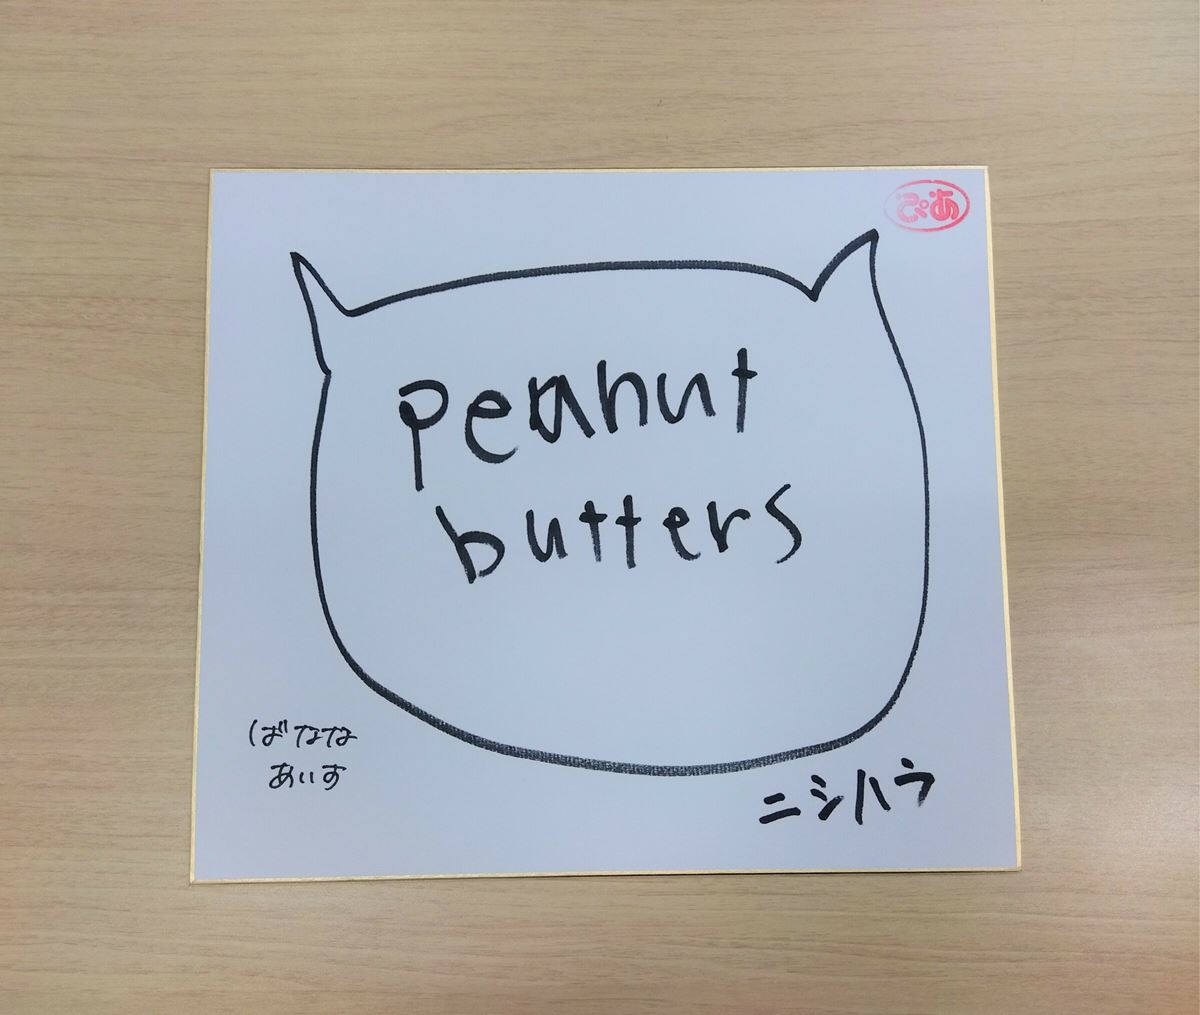 ぴあ
peanut
butters
ばななな
あいす
ニシハラ